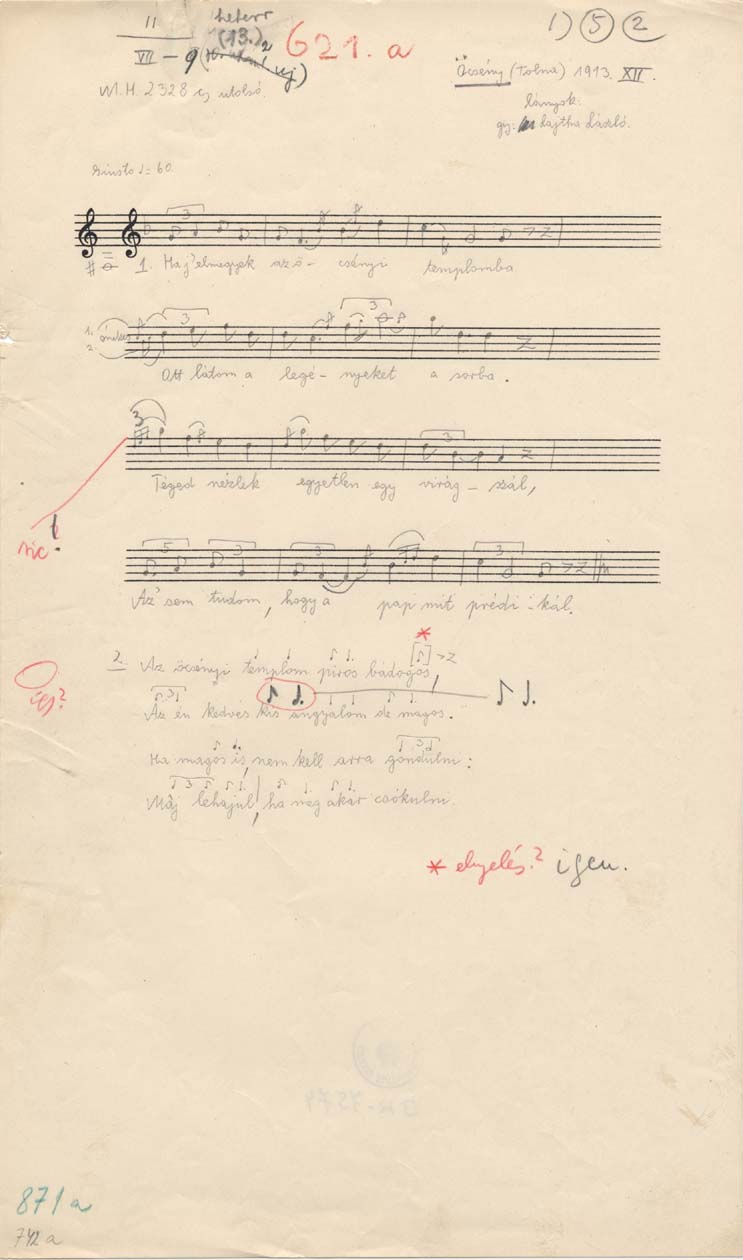 II heterr
VII - 9 (13.) 2 621. a 1) 5 2
M.H. 2328 c, utolsó.
Öcsény (Tolna) 1913. XII.
lányok.
gy: Lajtha László.
Giusto ♩= 60.
3
1. Haj' elmegyek az ö- csényi templomba
1.
2.
3 3
Ott látom a legé- nyeket a sorba.
3
3
Téged nézlek egyetlen egy virág - szál,
sic!
5 3 3 3
Az' sem tudom, hogy a pap mit prédi - kál.
*
2. Az öcsényi templom piros bádogos,
így?
3
Az én kedves kis angyalom de magos.
3
Ha magos is, nem kell arra gondulni:
3
Maj lehajul, ha meg akar csókulni.
* elnyelés? igen.
871 a
742 a